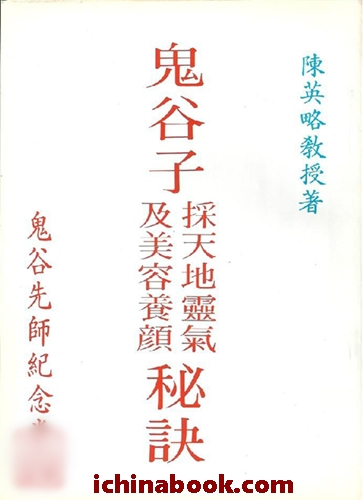 陳英略教授著
鬼谷子
採天地靈氣
及美容養顔
秘訣
鬼谷先師紀念
ichinabook.com